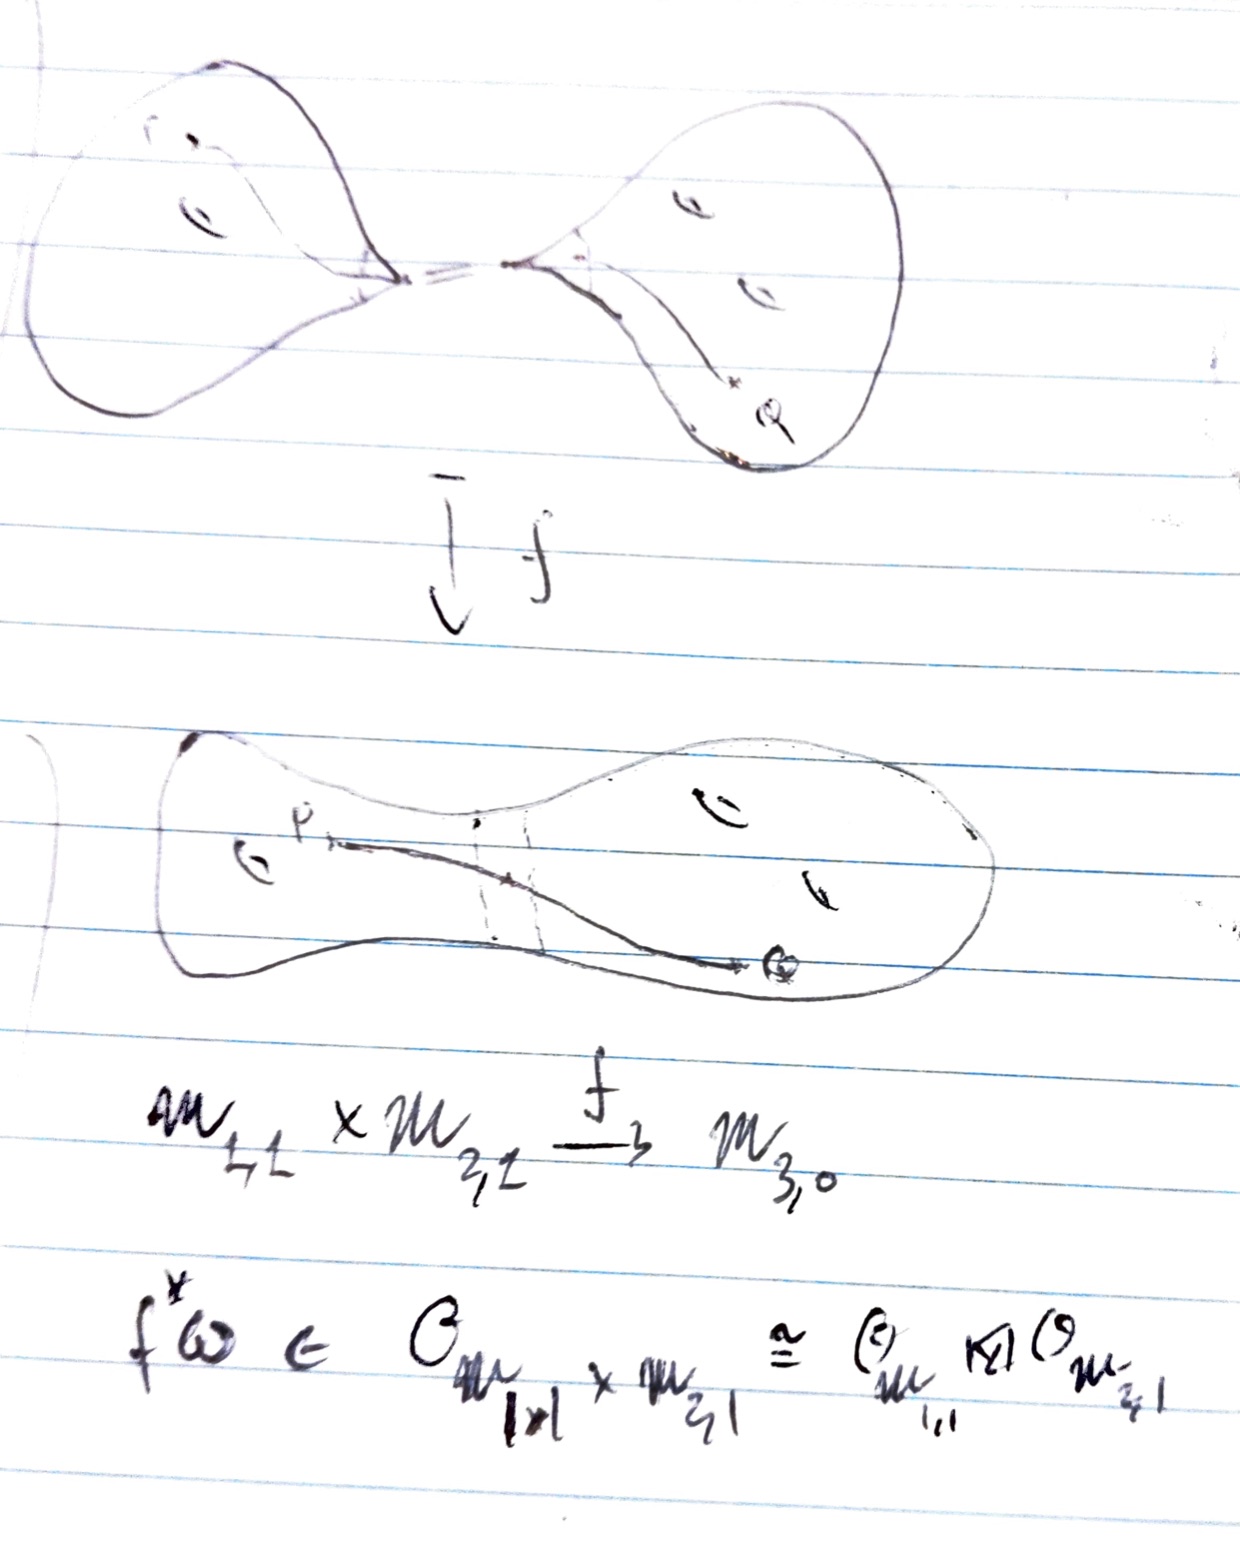 Q
f
P
Q
m₁,₁ × m₂,₁ →f m₃,₀
f*ω ∈ O_{m₁,₁ × m₂,₁} ≅ O_{m₁,₁} ⊠ O_{m₂,₁}